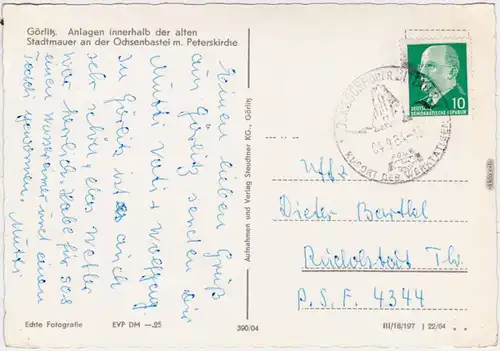 Görlitz. Anlagen innerhalb der alten
Stadtmauer an der Ochsenbastei m. Peterskirche
Einen lieben Gruß
aus Görlitz senden Dir
Mutti Vati + Wolfgang.
In Görlitz ist es auch
sehr schön, das Wetter
war herrlich. Habe für 50
einen Wassereimer und einen
gewonnen. Mutti
Aufnahmen und Verlag Stendtner KG., Görlitz
DEUTSCHE
DEMOKRATISCHE REPUBLIK
10
KURORT DER WERKTÄTIGEN
Uffz
Dieter Barthel
Rudolstadt Th.
P.S.F. 4344
Echte Fotografie EVP DM —.25 390/04 III/18/197 J 22/64